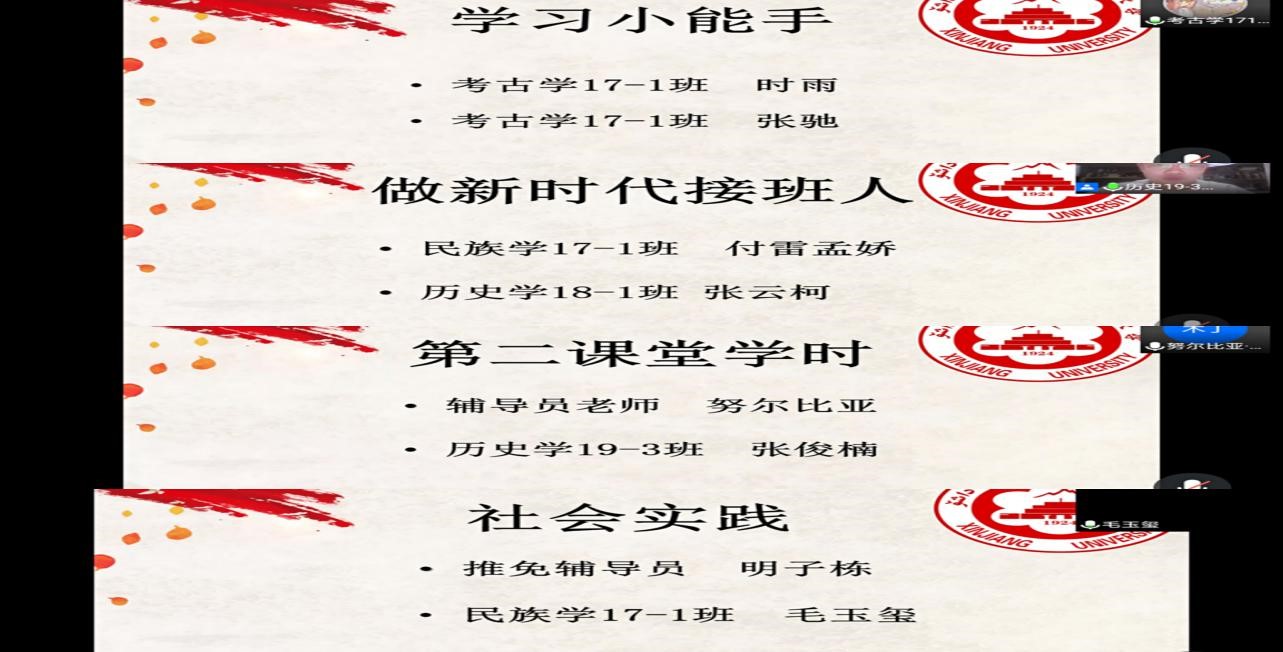 学习小能手
考古学171...
1924
XINJIANG UNIVERSITY
• 考古学17-1班 时雨
• 考古学17-1班 张驰
做新时代接班人
1924
历史19-3...
XINJIANG UNIVERSITY
• 民族学17-1班 付雷孟娇
• 历史学18-1班 张云柯
第二课堂学时
1924
努尔比亚·...
XINJIANG UNIVERSITY
• 辅导员老师 努尔比亚
• 历史学19-3班 张俊楠
社会实践
192
毛玉玺
XINJIANG UNIVERSITY
• 推免辅导员 明子栋
• 民族学17-1班 毛玉玺